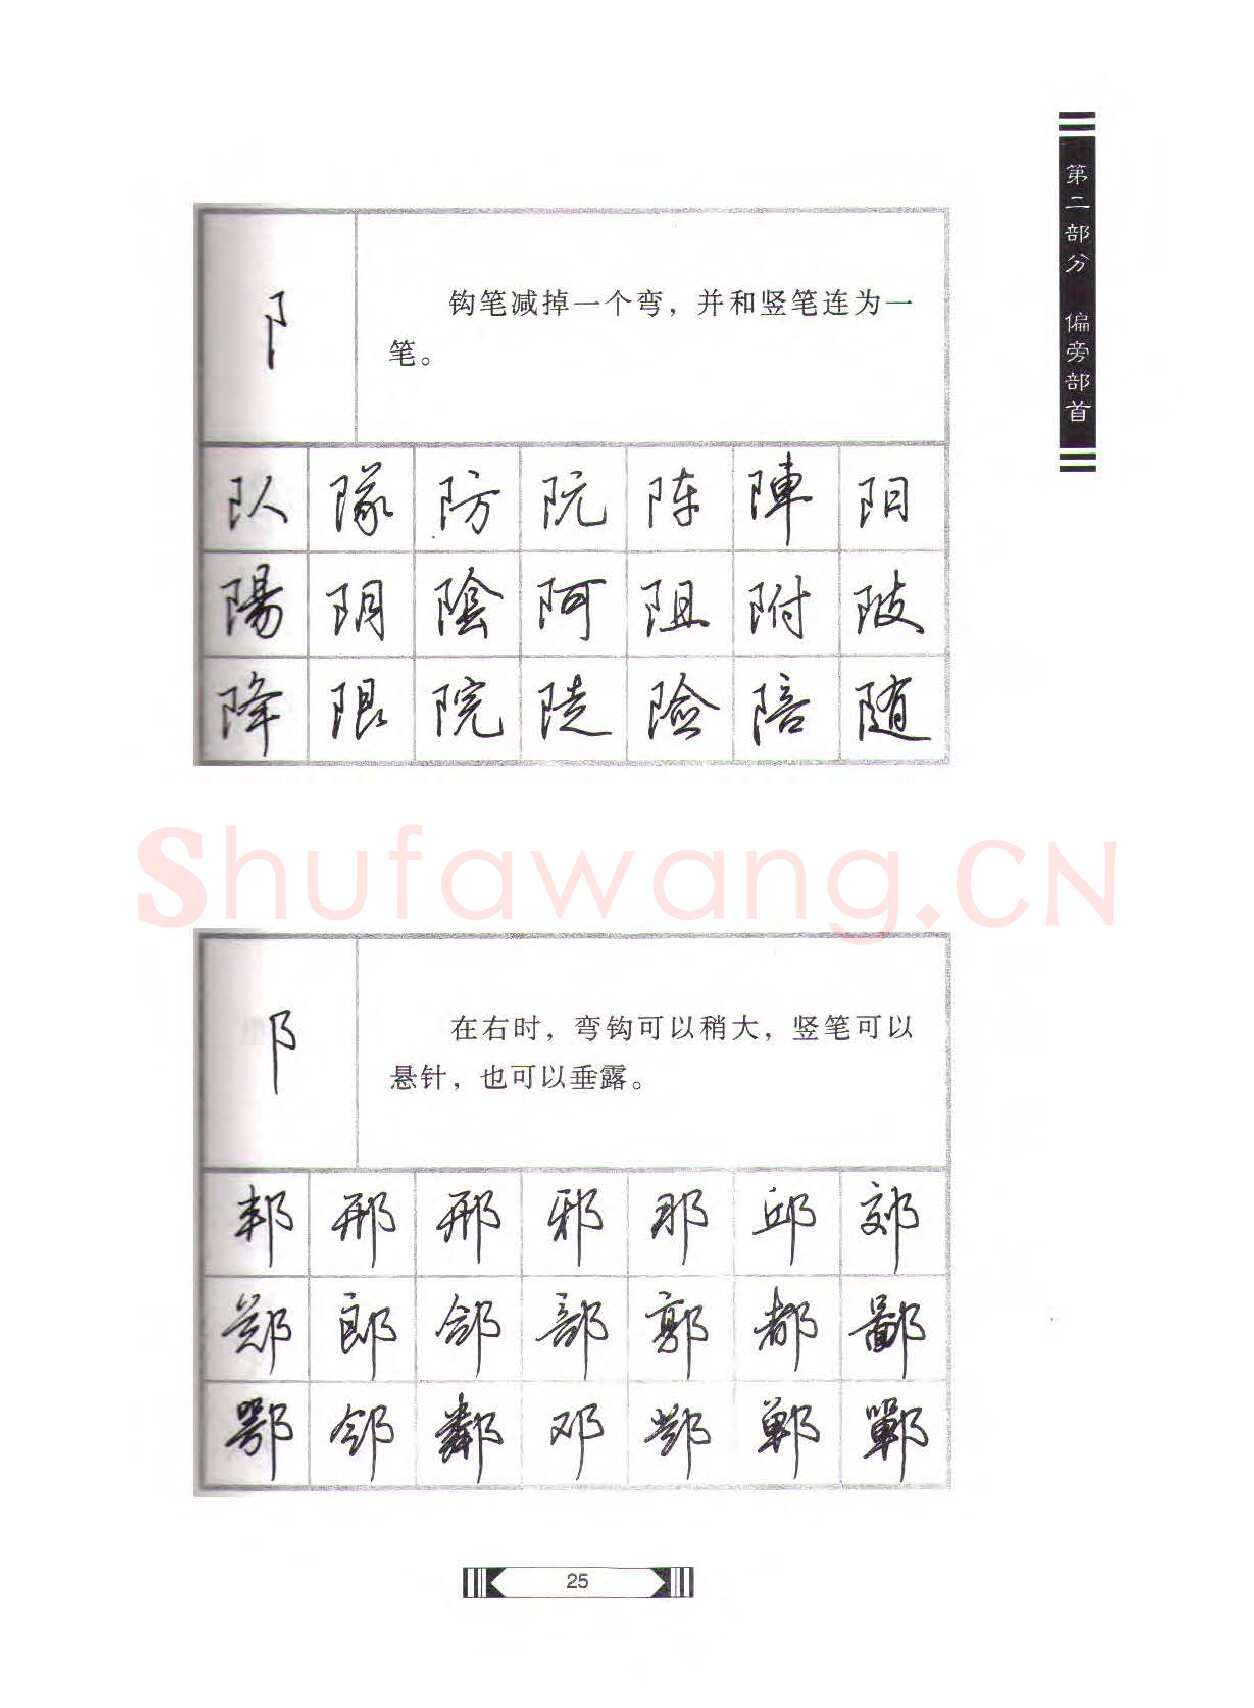 第二部分 偏旁部首
阝
钩笔减掉一个弯，并和竖笔连为一
笔。
队 隊 防 阮 阵 陣 阳
陽 阴 陰 阿 阻 附 陂
降 限 院 陡 險 陪 随
Shufawang.CN
阝
在右时，弯钩可以稍大，竖笔可以
悬针，也可以垂露。
邦 邢 邢 邪 那 邱 郊
郑 郎 郤 部 郭 都 鄙
鄂 邻 鄰 邓 郸 鄲
25